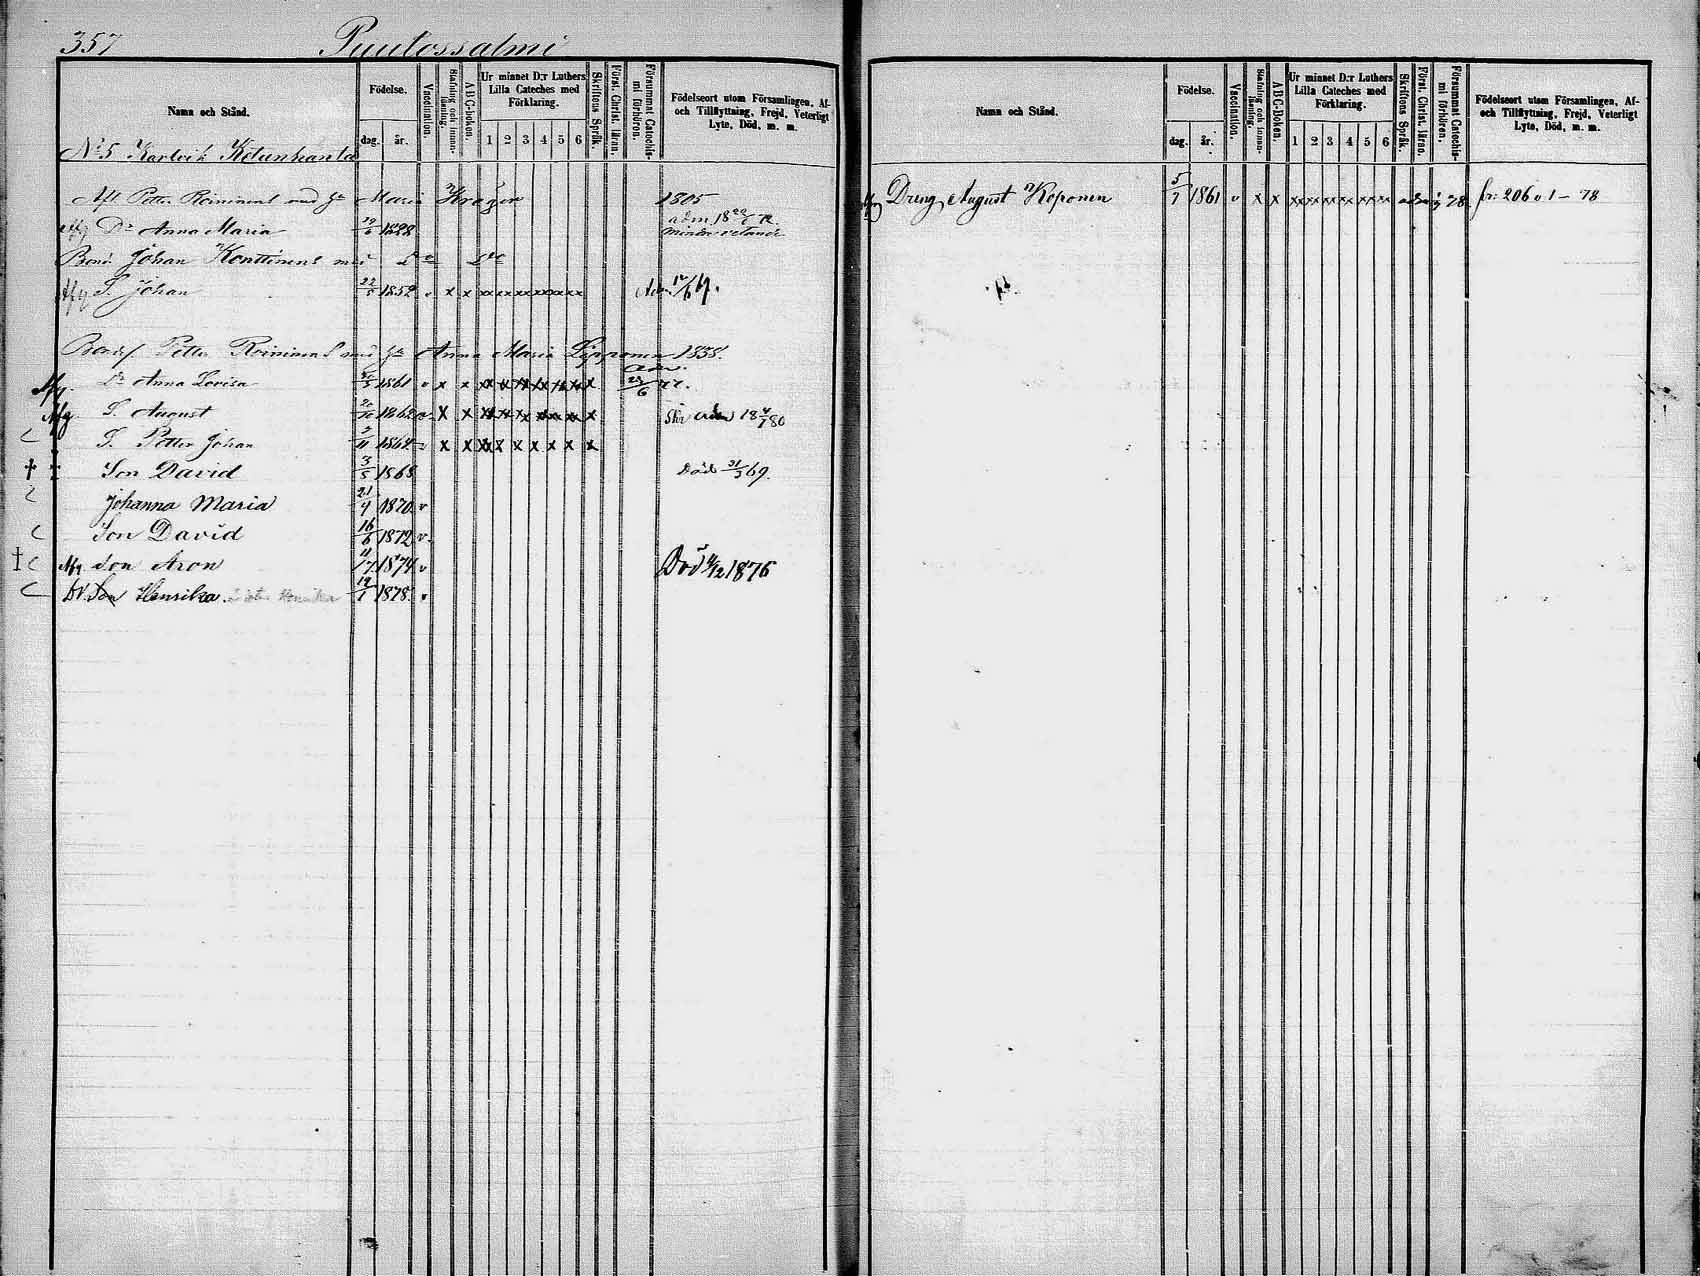 357 Puutossalmi
Namn och Stånd.
Födelse.
dag. år.
Vaccination.
Stafning och innan-läsning.
A B C-boken.
Ur minnet D:r Luthers Lilla Cateches med Förklaring.
1 2 3 4 5 6
Skriftens Språk.
Förest. Christ. läran.
Försummat Catechis-mi förhören.
Födelseort utom Församlingen, Af- och Tillflyttning, Frejd, Veterligt Lyte, Död, m. m.
No 5 Kartvik Ketunhanta
Afl. Petter Roininens med Hu Maria Kröger 1805
Afg Dr Anna Maria 1828 adm 18 mindre vetande
Bond. Johan Konttinens med Do Do
Afg S. Johan 22/5 1852 v x x xx xx xx xx xx xx Adm 69.
Bondef Petter Roininens med Hu Anna Maria Lipponen 1838.
Afg. Dr Anna Lovisa 1861 v x x xx xx xx xx xx xx x Adm. 77.
Afg S. August 20/10 1862 v x x xx xx xx xx xx xx x Skr adm 18 80
S. Petter Johan 1864 x x xx x x x x x x
† Son David 3/5 1868 Död 31/3 69.
Johanna Maria 21/4 1870 v
Son David 16/6 1872 v
† Afg. Son Aron 1874 v Död 1876
Dr. Son Henrika. 1878. v
Namn och Stånd.
Födelse.
dag. år.
Vaccination.
Stafning och innan-läsning.
A B C-Boken.
Ur minnet D:r Luthers Lilla Cateches med Förklaring.
1 2 3 4 5 6
Skriftens Språk.
Förest. Christ. läran.
Försummat Catechis-mi förhören.
Födelseort utom Församlingen, Af- och Tillflyttning, Frejd, Veterligt Lyte, Död, m. m.
Afg Dreng August Koponen 5/7 1861 v x x xx xx xx xx xx xx 78 fr: 206 v 1 - 78